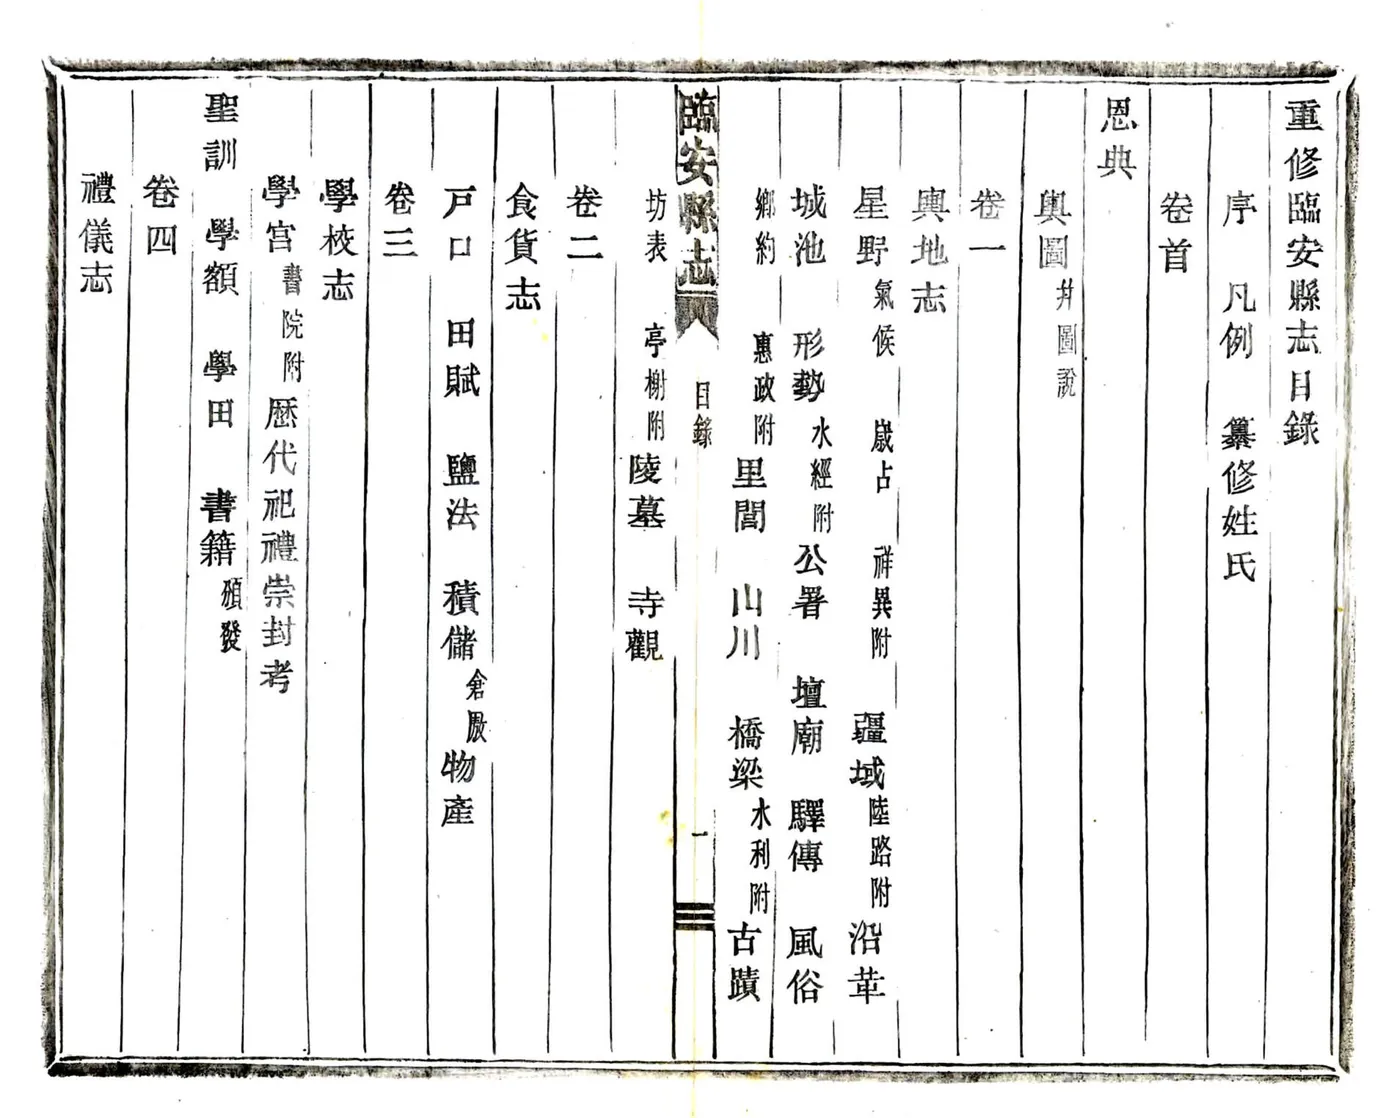 重修臨安縣志目錄
序 凡例 纂修姓氏
卷首
恩典
輿圖幷圖說
卷一
輿地志
星野氣候 歲占 祥異附 疆域陸路附 沿革
城池 形勢水經附 公署 壇廟 驛傳 風俗
鄉約 惠政附 里閭 山川 橋梁水利附 古蹟
臨安縣志 目錄 一
坊表 亭榭附 陵墓 寺觀
卷二
食貨志
戸口 田賦 鹽法 積儲倉厫 物產
卷三
學校志
學宮書院附 歷代祀禮崇封考
聖訓 學額 學田 書籍頒發
卷四
禮儀志